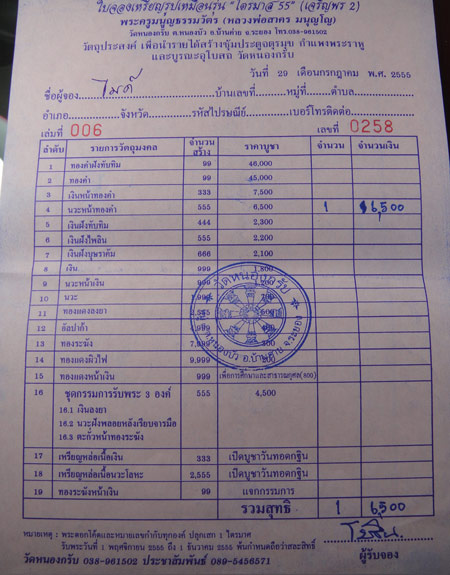 ใบจองเหรียญรูปเหมือนรุ่น "ไตรมาส 55" (เจริญพร 2)
พระครูมนูญธรรมวัตร (หลวงพ่อสาคร มนุญโญ)
วัดหนองกรับ ต.หนองบัว อ.บ้านค่าย จ.ระยอง โทร.038-961502
วัตถุประสงค์ เพื่อนำรายได้สร้างซุ้มประตูจตุรมุข กำแพงพระราหู
และบูรณะอุโบสถ วัดหนองกรับ
วันที่ 29 เดือนกรกฎาคม พ.ศ. 2555
ชื่อผู้จอง ไมด์ บ้านเลขที่ หมู่ที่ ตำบล
อำเภอ จังหวัด รหัสไปรษณีย์ เบอร์โทรติดต่อ
เล่มที่ 006 เลขที่ 0258
ลำดับ รายการวัตถุมงคล จำนวนสร้าง ราคาบูชา จำนวน จำนวนเงิน
1 ทองคำฝังทับทิม 99 46,000
2 ทองคำ 99 45,000
3 เงินหน้าทองคำ 333 7,500
4 นวะหน้าทองคำ 555 6,500 1 6,500
5 เงินฝังทับทิม 444 2,300
6 เงินฝังไพลิน 555 2,200
7 เงินฝังบุษราคัม 666 2,100
8 เงิน 999 1,800
9 นวะหน้าเงิน
10 นวะ 700
11 ทองแดงลงยา 2,555 500
12 อัลปาก้า
13 ทองระฆัง 300
14 ทองแดงผิวไฟ 9,999 200
15 ทองแดงหน้าเงิน 999 เพื่อการศึกษาและสาธารณกุศล(800)
16 ชุดกรรมการรับพระ 3 องค์ 555 4,500
16.1 เงินลงยา
16.2 นวะฝังพลอยหลังเรียบจารมือ
16.3 ตะกั่วหน้าทองระฆัง
17 เหรียญหล่อเนื้อเงิน 333 เปิดบูชาวันทอดกฐิน
18 เหรียญหล่อเนื้อนวะโลหะ 2,555 เปิดบูชาวันทอดกฐิน
19 ทองระฆังหน้าเงิน 99 แจกกรรมการ
รวมสุทธิ 1 6,500
หมายเหตุ : พระตอกโค๊ตและหมายเลขกำกับทุกองค์ ปลุกเสก 1 ไตรมาศ
รับพระวันที่ 1 พฤศจิกายน 2555 ถึง 1 ธันวาคม 2555 พ้นกำหนดถือว่าสละสิทธิ์
วัดหนองกรับ 038-961502 ประชาสัมพันธ์ 089-5456571 ผู้รับจอง